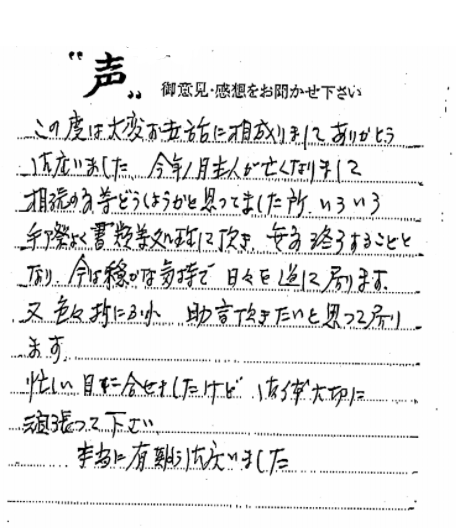 "声" 御意見・感想をお聞かせ下さい
この度は大変お世話に相成りましてありがとう
御座いました。今年1月主人が亡くなりまして
相続の事等どうしようかと思ってました所、いろいろ
手際よく書類等処理して頂き、無事終了することと
なり、今は穏かな気持で日々を送って居ります。
又色々折にふれ 助言頂きたいと思って居り
ます。
忙しい目に合せましたけど、御身体大切に
頑張って下さい。
本当に有難う御座いました